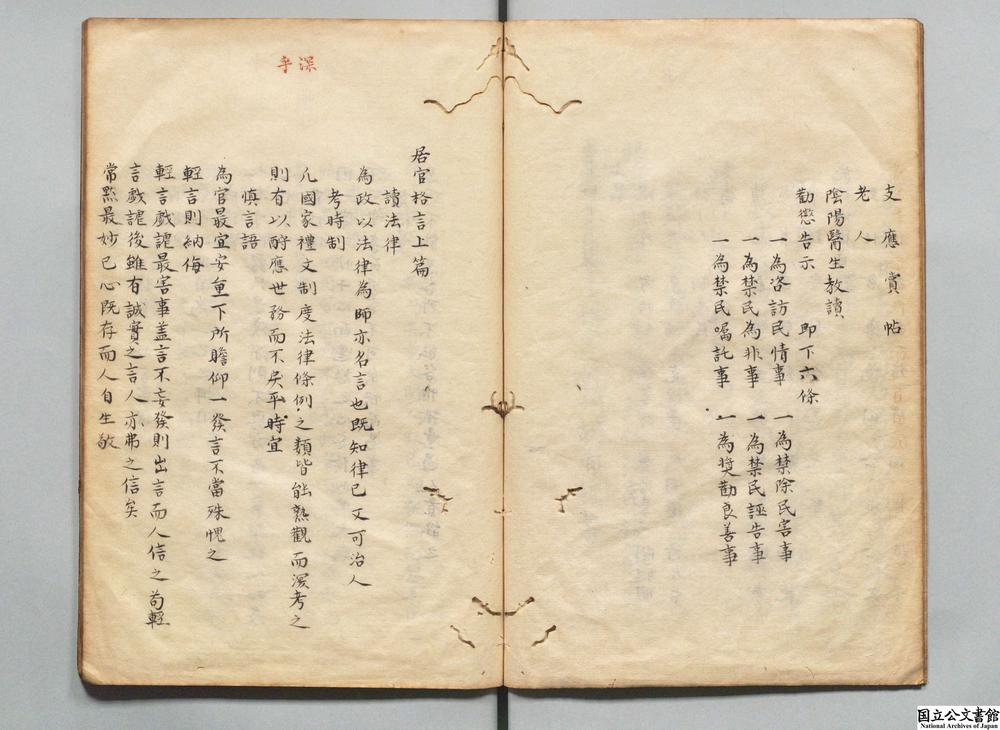 支應賞帖
老人
陰陽醫生教讀
勸懲告示　即下六條
一為咨訪民情事　一為禁除民害事
一為禁民為非事　一為禁民誣告事
一為禁民囑託事　一為奬勸良善事
居官格言上篇
讀法律
為政以法律為師亦名言也既知律己又可治人
考時制
凡國家禮文制度法律條例之類皆能熟觀而深考之
則有以酧應世務而不戾乎時宜
一慎言語
為官最宜安重下所瞻仰一發言不當殊愧之
輕言則納侮
輕言戲謔最害事盖言不妄發則出言而人信之苟輕
言戲謔後雖有誠實之言人亦弗之信矣
常黙最妙已心既存而人自生敬
深
乎
国立公文書館
National Archives of Japan